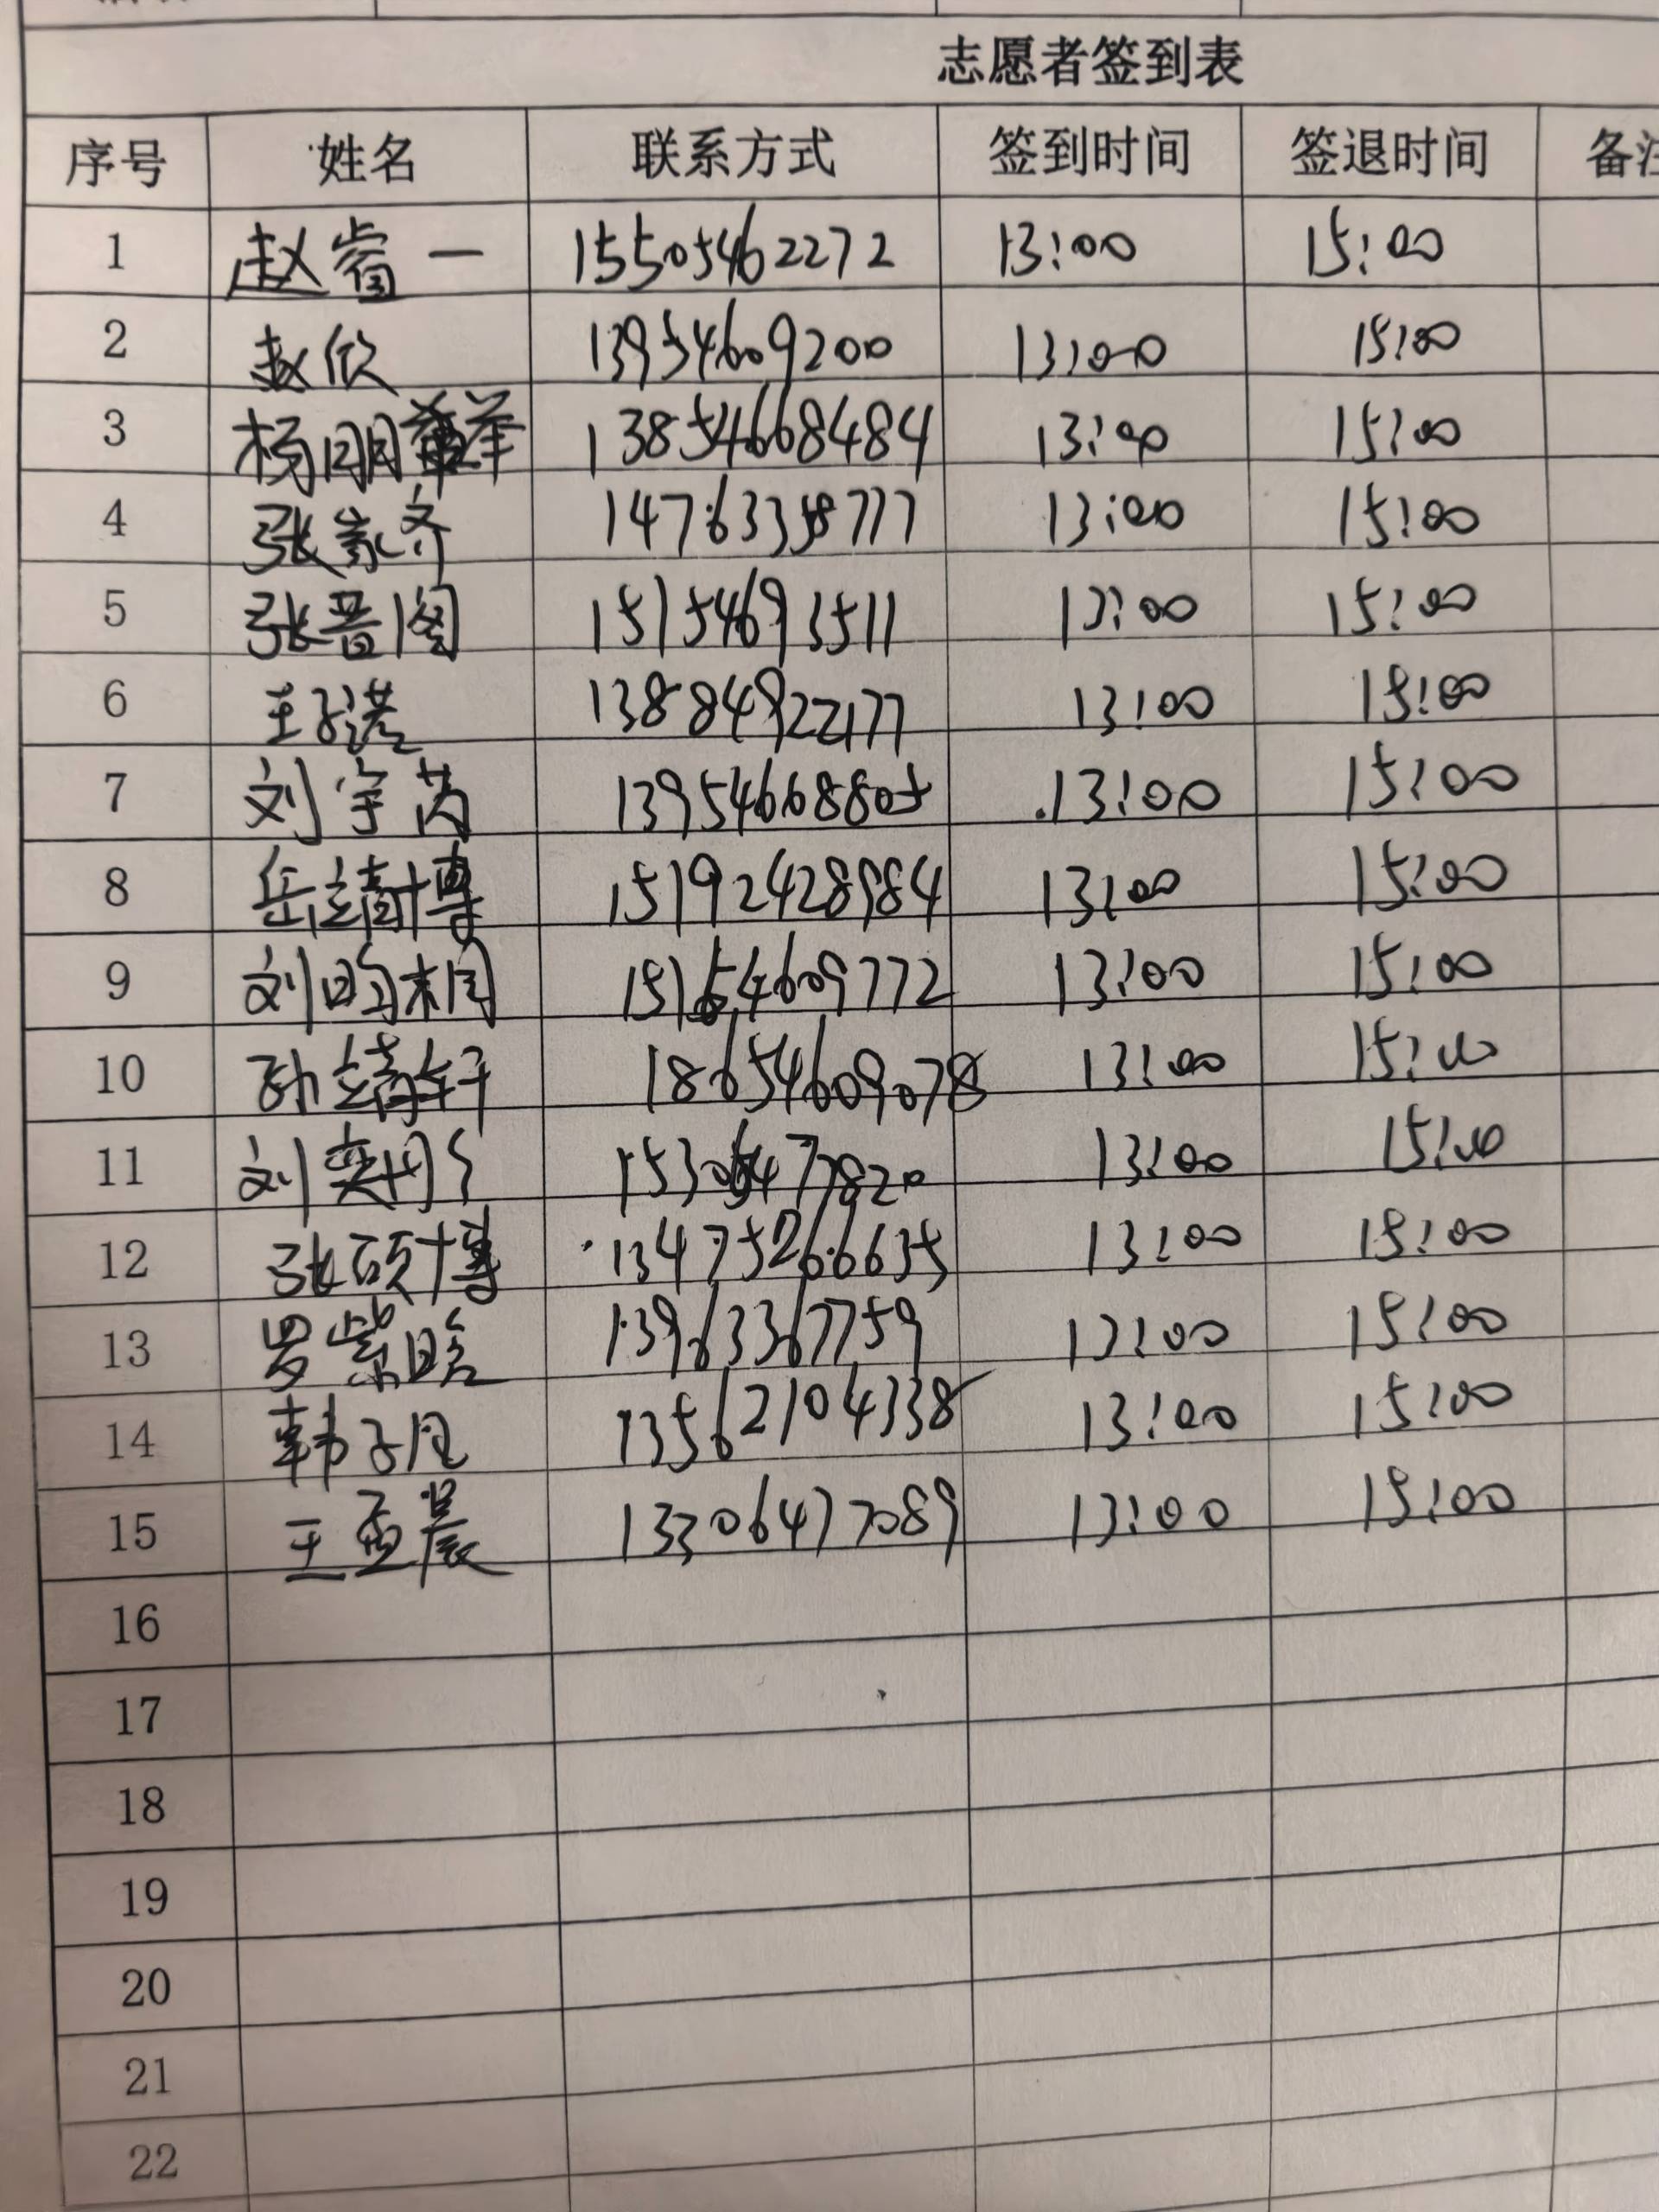 志愿者签到表
序号 姓名 联系方式 签到时间 签退时间 备注
1 赵睿一 15505462272 13:00 15:00
2 赵欣 13954609200 13:00 15:00
3 杨 13854668484 13:00 15:00
4 张家齐 14763358777 13:00 15:00
5 张晋阁 15154693511 13:00 15:00
6 王子诺 13884922177 13:00 15:00
7 刘宇芮 13954668805 13:00 15:00
8 岳靖博 15192428984 13:00 15:00
9 刘昀桐 15154609772 13:00 15:00
10 孙靖轩 18654609078 13:00 15:00
11 刘奕彤 13:00 15:00
12 张硕博 13475266635 13:00 15:00
13 罗紫晗 13963367759 13:00 15:00
14 韩子凡 13562104338 13:00 15:00
15 王孟晨 13306477089 13:00 15:00
16
17
18
19
20
21
22